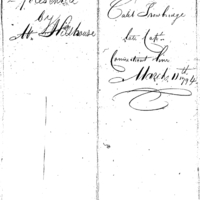 Presented
by
Mr. Hillhouse
Caleb Trowbridge
late Capt.
Connecticut Line
March 11th
1794